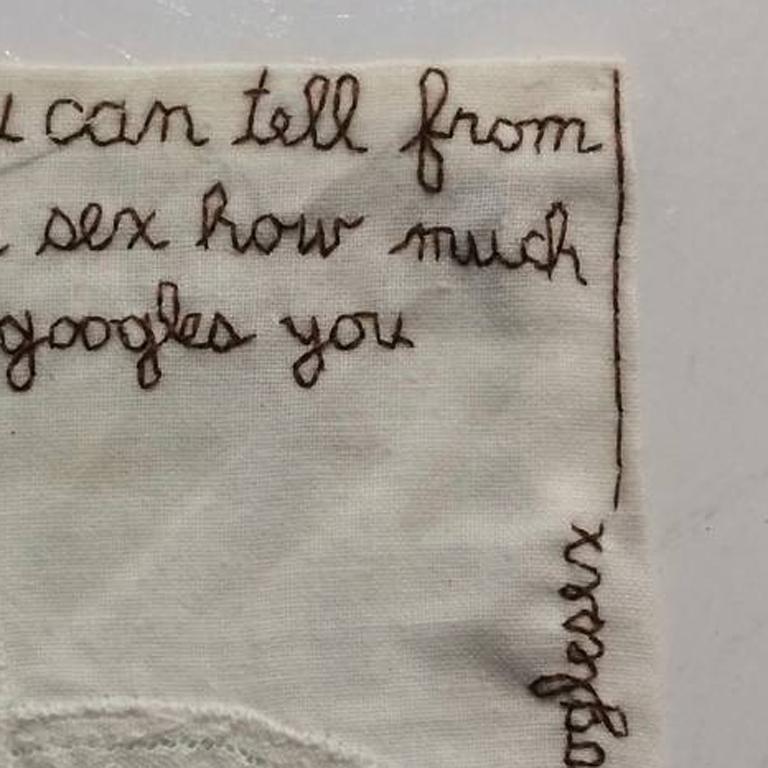 can tell from
sex how much
googles you
oglesex